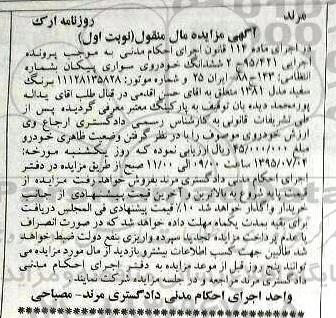 مرند
روزنامه ارک
آگهی مزایده مال منقول(نوبت اول)
در اجرای ماده ۱۱۴ قانون اجرای احکام مدنی به موجب پرونده
اجرایی ۹۵/۴۲۱- ۲ ششدانگ خودروی سواری پیکان بشماره
انتظامی: ۲۳۳-۸۸ ایران ۲۵ و شماره موتور: ۱۱۱۲۸۱۳۵۸۲۸ برنگ
سفید مدل ۱۳۸۱ متعلق به آقای حسن اقدمی در قبال طلب آقای یداله
پورمحمد دیده بان توقیف به پارکینگ معتبر معرفی گردیده پس از
طی تشریفات قانونی به کارشناس رسمی دادگستری ارجاع وی
ارزش خودروی موصوف را با در نظر گرفتن وضعیت ظاهری خودرو
مبلغ ۳۵/۰۰۰/۰۰۰ ریال ارزیابی نموده که روز یکشنبه مورخه:
۱۳۹۵/۰۷/۰۴ ساعت ۰۹/۰۰ الی ۱۱/۰۰ صبح از طریق مزایده در دفتر
اجرای احکام مدنی دادگستری مرند بفروش خواهد رفت مزایده از
قیمت پایه شروع و به بالاترین و آخرین قیمت پیشنهادی از جانب
خریدار واگذار خواهد شد ۱۰٪ قیمت پیشنهادی فی المجلس دریافت
برای بقیه بمدت یکماه مهلت داده خواهد شد که در صورت انصراف
یا عدم پرداخت مزایده تجدید سپرده واریزی بنفع دولت ضبط خواهد
شد طالبین جهت کسب اطلاعات بیشتر و بازدید از مال مورد مزایده می
توانند پنج روز قبل از موعد مزایده به دفتر اجرای احکام مدنی
دادگستری مرند مراجعه و در جلسه مزایده شرکت نمایند.
واحد اجرای احکام مدنی دادگستری مرند- مصباحی